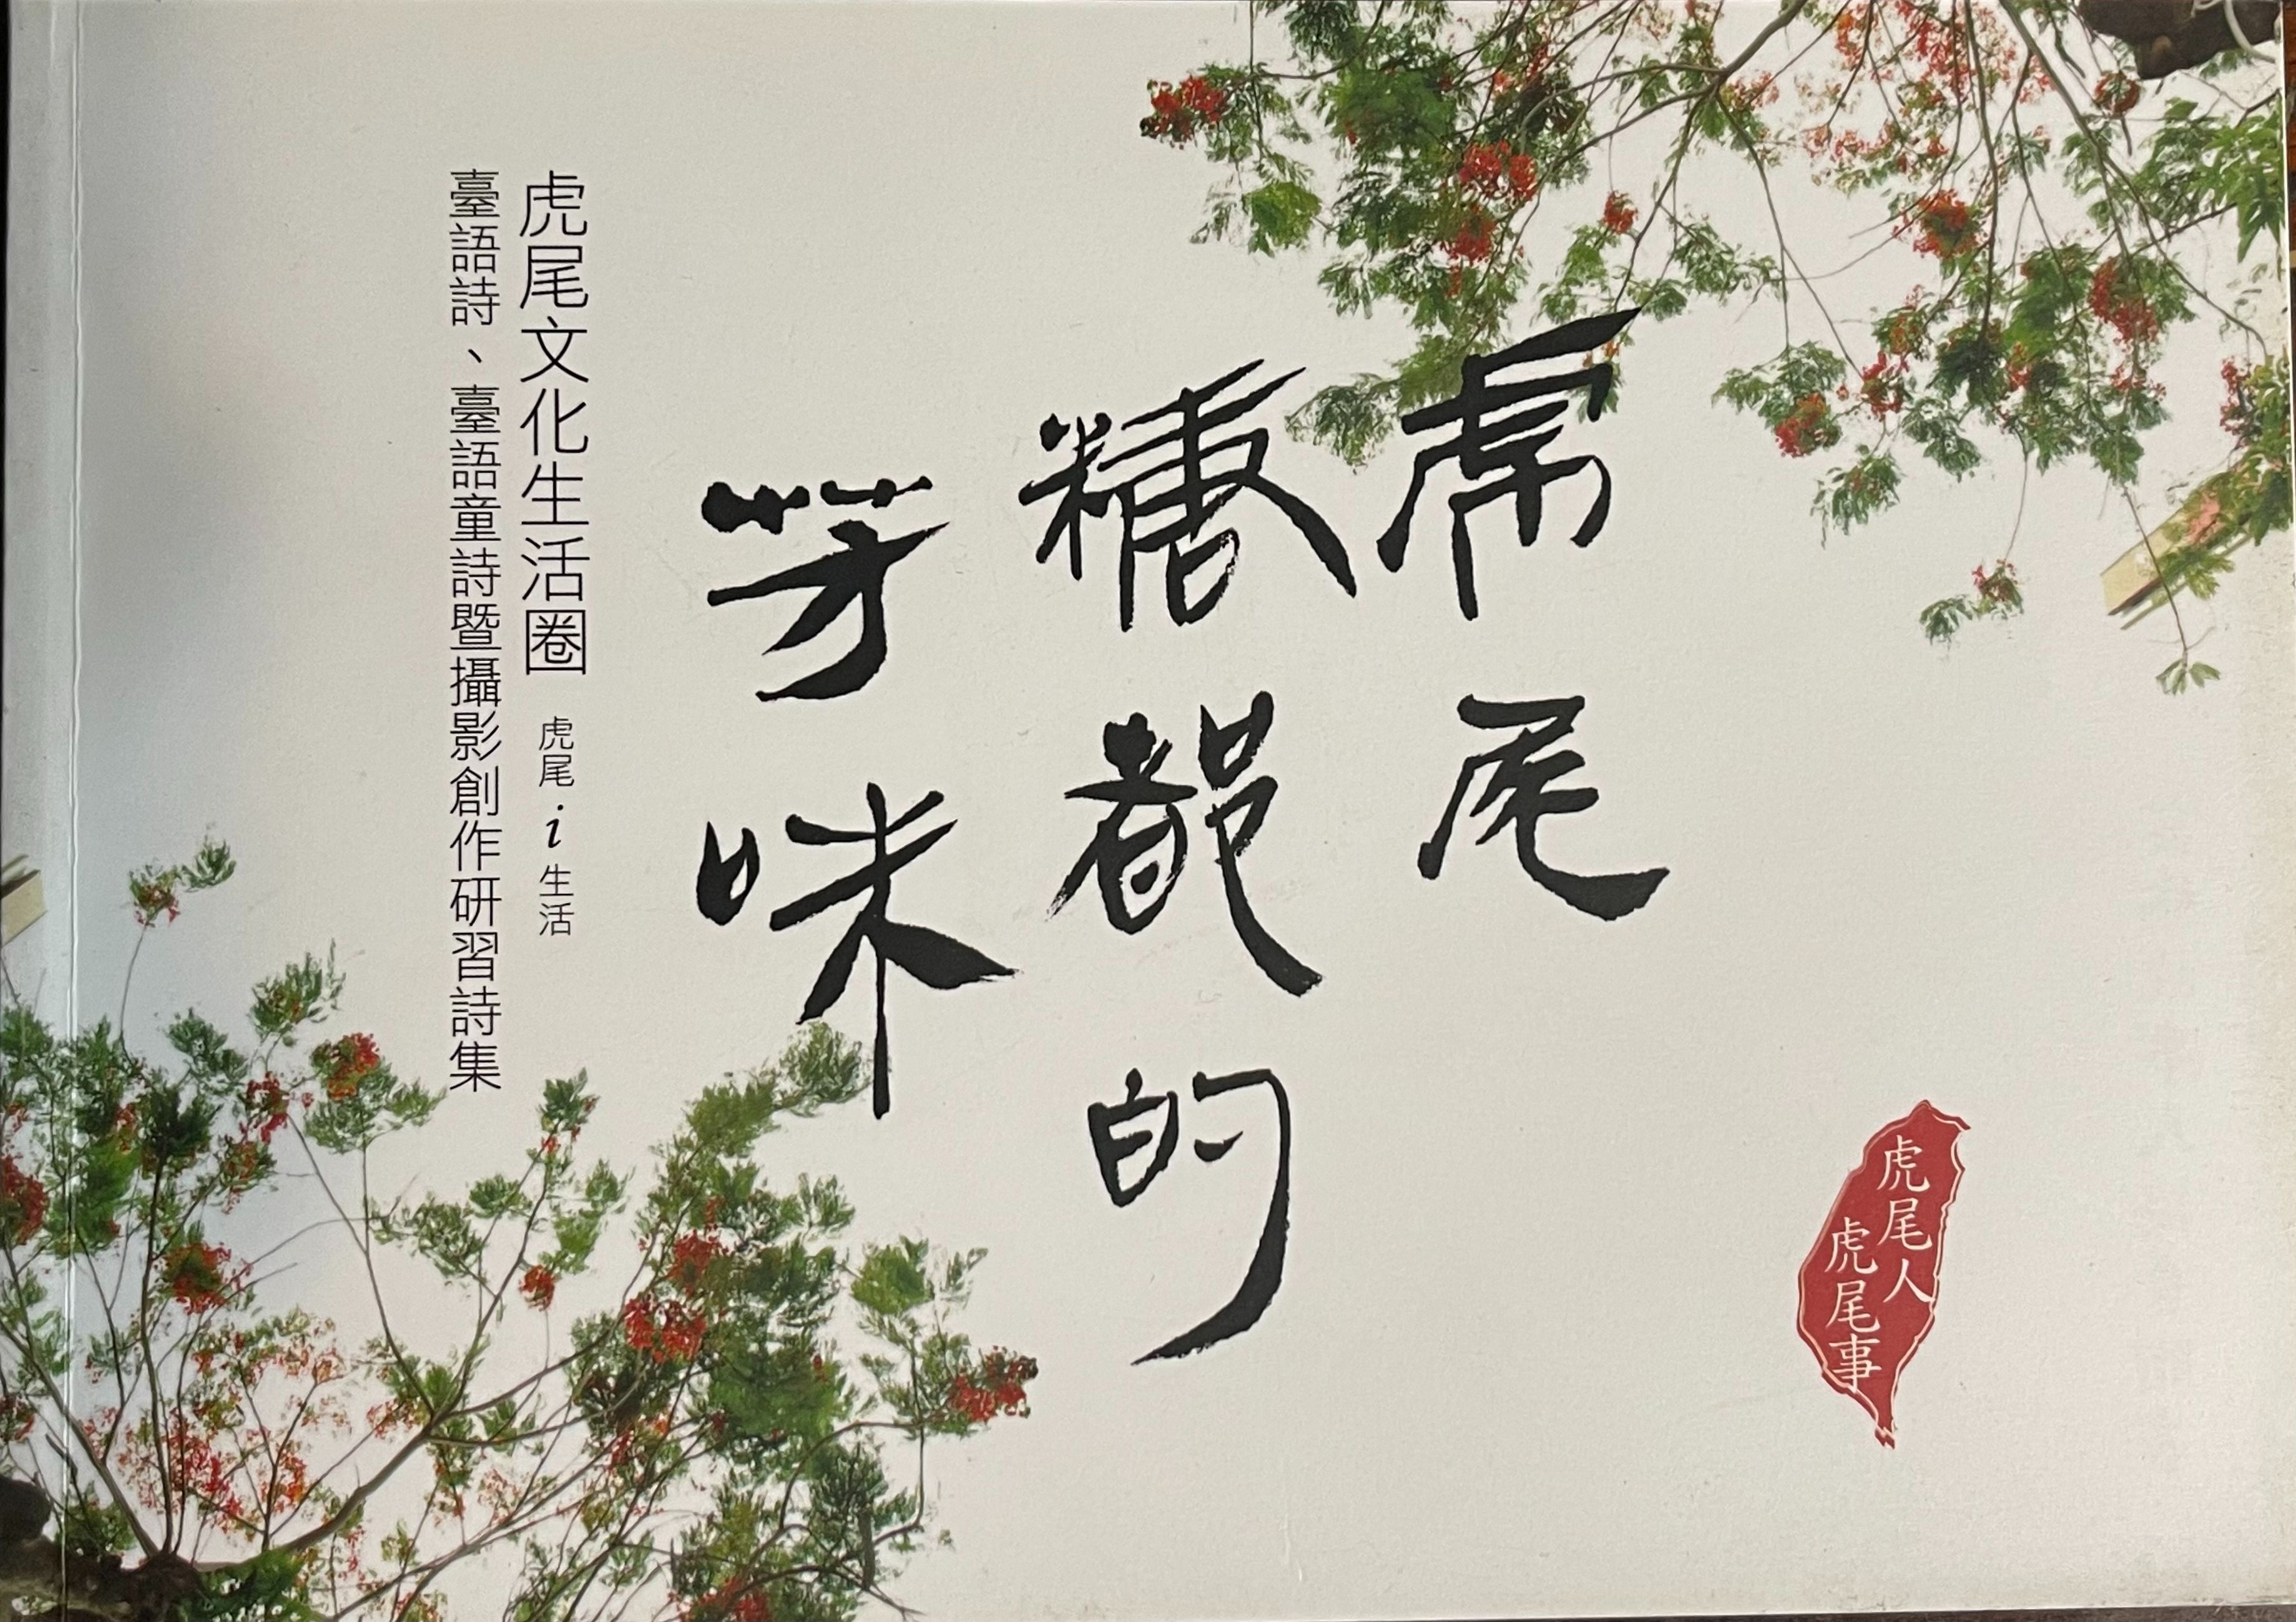 虎尾
糖都的
芳味
虎尾文化生活圈 虎尾i生活
臺語詩、臺語童詩暨攝影創作研習詩集
虎尾人
虎尾事